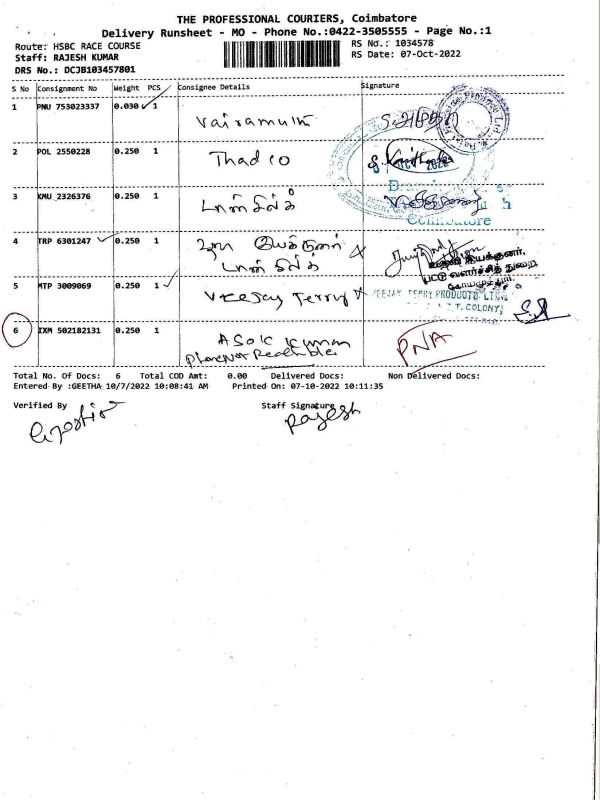 THE PROFESSIONAL COURIERS, Coimbatore
Delivery Runsheet - MO - Phone No.:0422-3505555 - Page No.:1
Route: HSBC RACE COURSE
RS No.: 1034578
Staff: RAJESH KUMAR
RS Date: 07-Oct-2022
DRS No.: DCJB103457801
S No Consignment No Weight PCS Consignee Details Signature
1 PNU 753023337 0.030 1
Vairamuth
2 POL 2550228 0.250 1
Thad co
3 KMU 2326376 0.250 1
டான்சில்க்
Coimbatore
4 TRP 6301247 0.250 1
துணை இயக்குனர்
டான் சில்க்
உதவி இயக்குனர்,
பட்டு வளர்ச்சித் துறை,
கோயமுத்தூர்.
5 MTP 3009069 0.250 1
Veejay Terry
VEEJAY TERRY PRODUCTS LTD.,
T. COLONY,
6 IXM 502182131 0.250 1
ASOK Kumar
Phone Not Reachable
PNA
Total No. Of Docs: 6 Total COD Amt: 0.00 Delivered Docs: Non Delivered Docs:
Entered By :GEETHA 10/7/2022 10:08:41 AM Printed On: 07-10-2022 10:11:35
Verified By Staff Signature
Rajesh